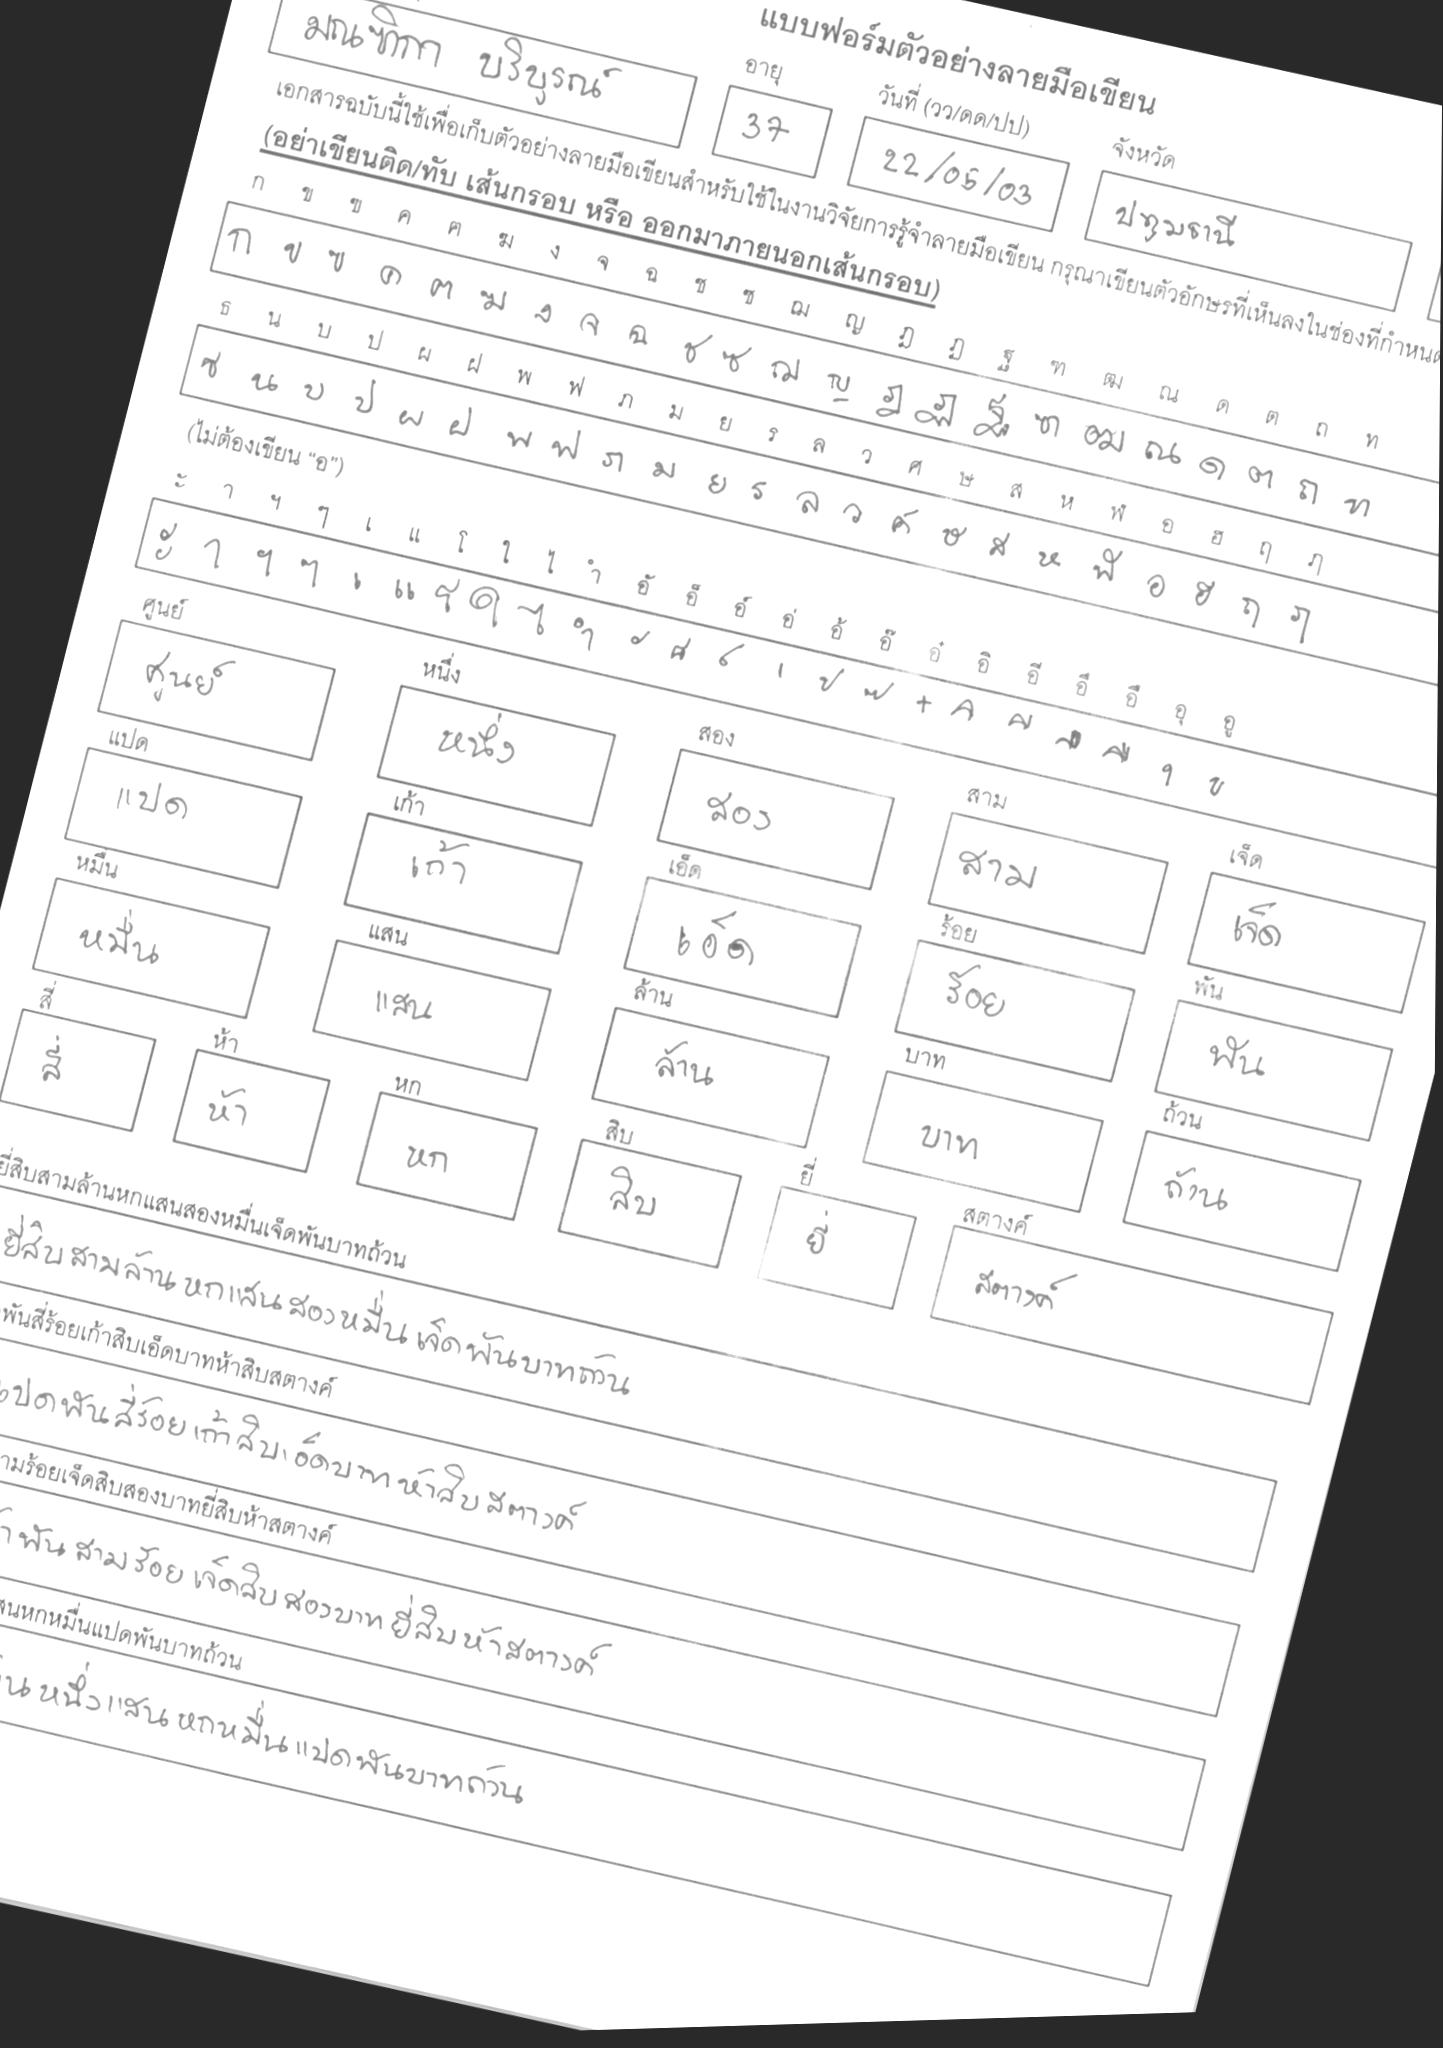 แบบฟอร์มตัวอย่างลายมือเขียน
อายุ วันที่ (วว/ดด/ปป) จังหวัด
บริบูรณ์ 37 22/05/03 ปทุมธานี
เอกสารฉบับนี้ใช้เพื่อเก็บตัวอย่างลายมือเขียนสำหรับใช้ในงานวิจัยการรู้จำลายมือเขียน กรุณาเขียนตัวอักษรที่เห็นลงในช่องที่กำหนด
(อย่าเขียนติด/ทับ เส้นกรอบ หรือ ออกมาภายนอกเส้นกรอบ)
ก ข ฃ ค ฅ ฆ ง จ ฉ ช ซ ฌ ญ ฎ ฏ ฐ ฑ ฒ ณ ด ต ถ ท
ก ข ฃ ค ฅ ฆ ง จ ฉ ช ซ ฌ ญ ฎ ฏ ฐ ฑ ฒ ณ ด ต ถ ท
ธ น บ ป ผ ฝ พ ฟ ภ ม ย ร ล ว ศ ษ ส ห ฬ อ ฮ ฤ ฦ
ธ น บ ป ผ ฝ พ ฟ ภ ม ย ร ล ว ศ ษ ส ห ฬ อ ฮ ฤ ฦ
(ไม่ต้องเขียน "อ")
ะ า ฯ ๆ เ แ โ ใ ไ ำ อั อ็ อ์ อ่ อ้ อ๊ อ๋ อิ อี อึ อื อุ อู
ะ า ฯ ๆ เ แ โ ใ ไ ำ ั ็ ์ ่ ้ ๊ ๋ ิ ี ึ ื ุ ู
ศูนย์ หนึ่ง สอง สาม เจ็ด
ศูนย์ หนึ่ง สอง สาม เจ็ด
แปด เก้า เอ็ด ร้อย พัน
แปด เก้า เอ็ด ร้อย พัน
หมื่น แสน ล้าน บาท ถ้วน
หมื่น แสน ล้าน บาท ถ้วน
สี่ ห้า หก สิบ ยี่ สตางค์
สี่ ห้า หก สิบ ยี่ สตางค์
ยี่สิบสามล้านหกแสนสองหมื่นเจ็ดพันบาทถ้วน
ยี่สิบสามล้านหกแสนสองหมื่นเจ็ดพันบาทถ้วน
พันสี่ร้อยเก้าสิบเอ็ดบาทห้าสิบสตางค์
แปดพันสี่ร้อยเก้าสิบเอ็ดบาทห้าสิบสตางค์
ามร้อยเจ็ดสิบสองบาทยี่สิบห้าสตางค์
พันสามร้อยเจ็ดสิบสองบาทยี่สิบห้าสตางค์
สนหกหมื่นแปดพันบาทถ้วน
หนึ่งแสนหกหมื่นแปดพันบาทถ้วน